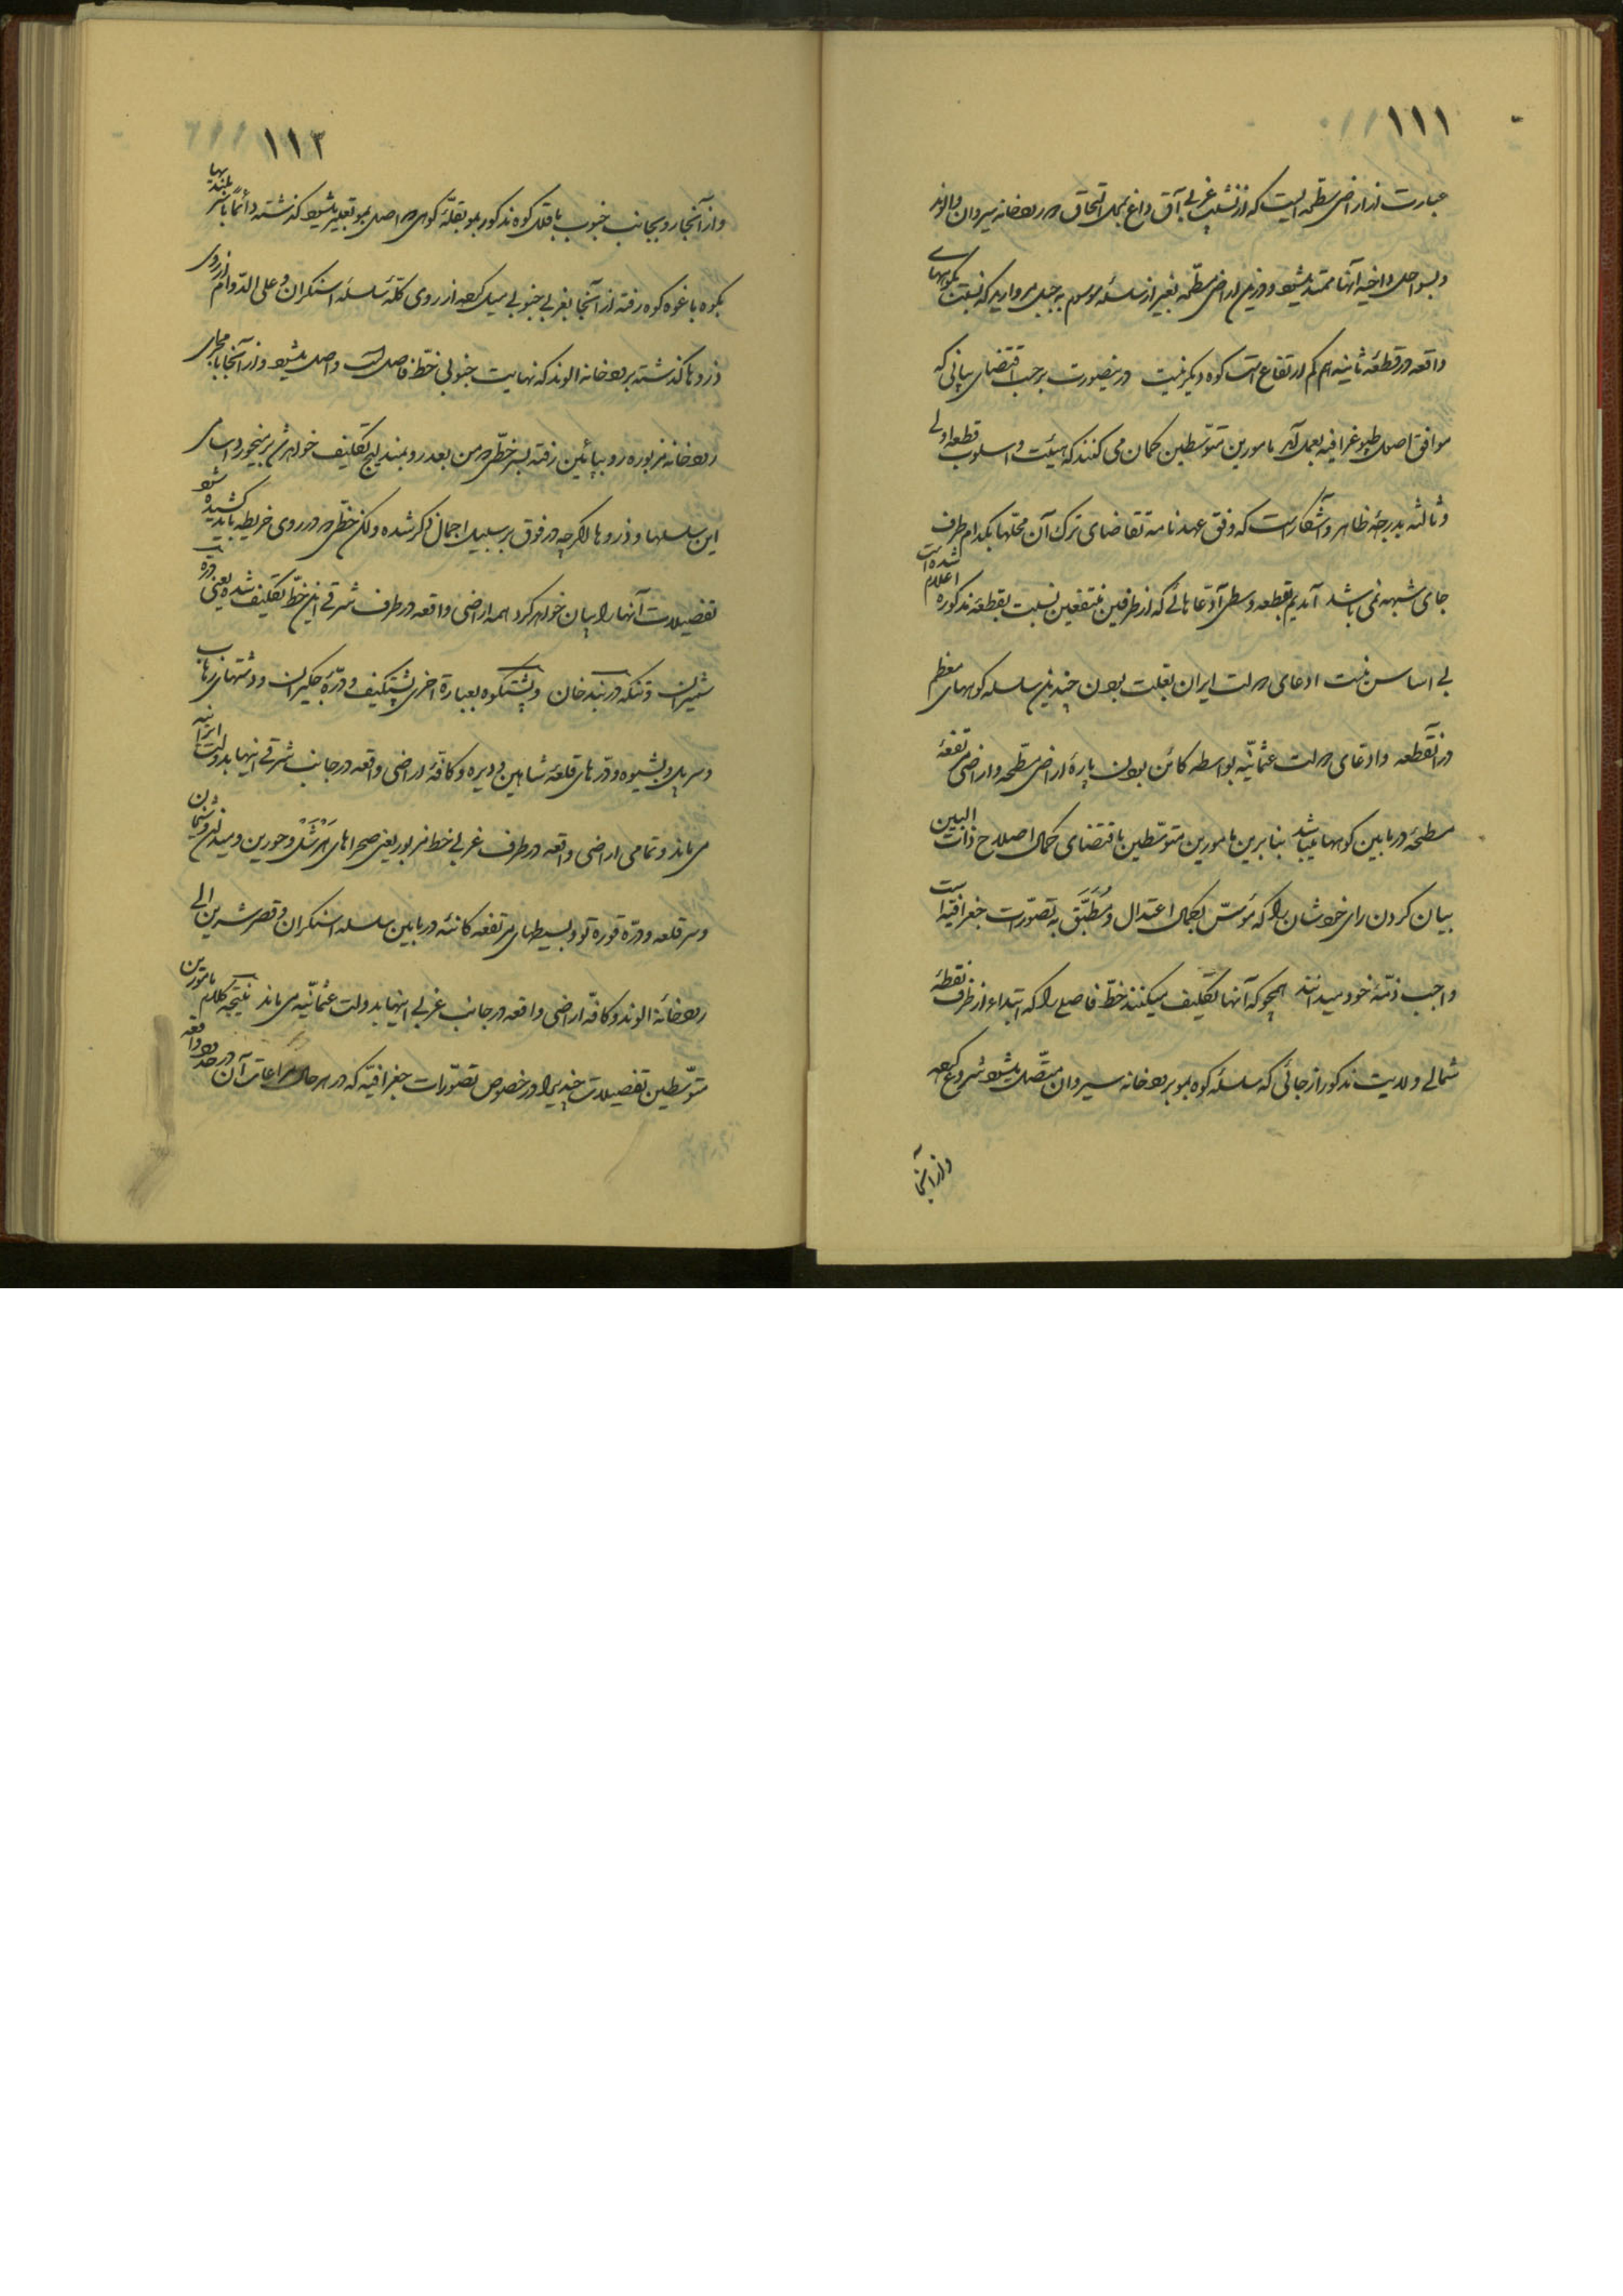 ۱۱۱
عبارت از اراضی مسطحه ایست که از نشیب غربی آق داغ بمحل التحاق دو رودخانه سیروان و الوند
و بسواحل داخلیه آنها ممتد میشود و در این اراضی مسطحه بغیر از سلسله موسوم به جبل مروارید که نسبت بکوههای
واقعه در قطعهٔ ثانیه هم کم ارتفاع است کوه دیگر نیست در اینصورت بر حسب اقتضای بیانی که
موافق اصول طپوغرافیه بعمل آمد مامورین متوسطین گمان می کنند که هیئت و اسلوب قطعه اولی
و ثالثه بدرجهٔ ظاهر و آشکار است که وفق عهدنامه تقاضای ترک آن محلها بکدام طرف
جای شبهه نمی باشد آمدیم بقطعه وسطی آدعاهائی که از طرفین متفقین نسبت بقطعهٔ مذکوره اعلام شده است
بی اساس نیست ادعای دولت ایران بعلت بودن چندین سلسله کوههای معظم
در آنقطعه و ادعای دولت عثمانیه بواسطه کائن بودن پارهٔ اراضی مسطحه و اراضی مرتفعهٔ
مسطحه در مابین کوهها میباشد بنابرین مامورین متوسّطین باقتضای کمال اصلاح ذات البین
بیان کردن رای خودشان را که مؤسّس بکمال اعتدال و مُطَبَّق به تصوّرات جغرافیه است
واجب ذمّهٔ خود میدانند همچو که آنها تکلیف میکنند خطّ فاصلی را که ابتداء از طرف نقطهٔ
شمالی ولایت مذکور از جائی که سلسلهٔ کوه بمو برودخانه سیروان متّصل میشود شروع کرده
و از آنجا
۱۱۲
و از آنجا رو بجانب جنوب با قلل کوه مذکور بمو بقلّهٔ کوهی که اصل بمو تعبیر میشود گذشته دائماً با سر بلندیها
بکوه باغوه کوه رفته از آنجا بغربی جنوبی میل کرده از روی کلّهٔ سلسلهٔ اسنکران و علی الدّوام از روی
ذروها گذشته برودخانه الوند که نهایت جنوبی خطّ فاصل است واصل میشود و از آنجا با مجرای
رودخانه مزبوره رو بپائین رفته بسر خطّی که من بعد رو بمندلیج تکلیف خواهد شد بر میخورد اسامی
این سلسلها و ذروها اگر چه در فوق بر سبیل اجمال ذکر شده ولکن خطّی که در روی خریطه باید کشیده شود
تفصیلات آنها را بیان خواهد کرد همه اراضی واقعه در طرف شرقی این خطّ تکلیف شده یعنی درهٔ
شمیران و تنکه دربند خان و پشتکوه بعبارة اخری پشتکیف و درّهٔ جکیران و دشتهای زهاب
و سرپل و بشیوه و درّهای قلعهٔ شاهین و دیره و کافهٔ اراضی واقعه در جانب شرقی اینها بدولت ایرانیه
می ماند و تمامی اراضی واقعه در طرف غربی خط مزبور یعنی صحراهای هَرْشَل و حورین و میدان و شمیان
و سر قلعه و درّه قوره تو و بسیطهای مرتفعه کائنه در مابین سلسله اسنکران و قصر شیرین الی
رودخانهٔ الوند و کافهٔ اراضی واقعه در جانب غربی اینها بدولت عثمانیّه می ماند نتیجهٔ کلام مامورین
متوسّطین تفصیلات چندی را در خصوص تصوّرات جغرافیّه که در هر حال مراعات آن در حدود واقعه